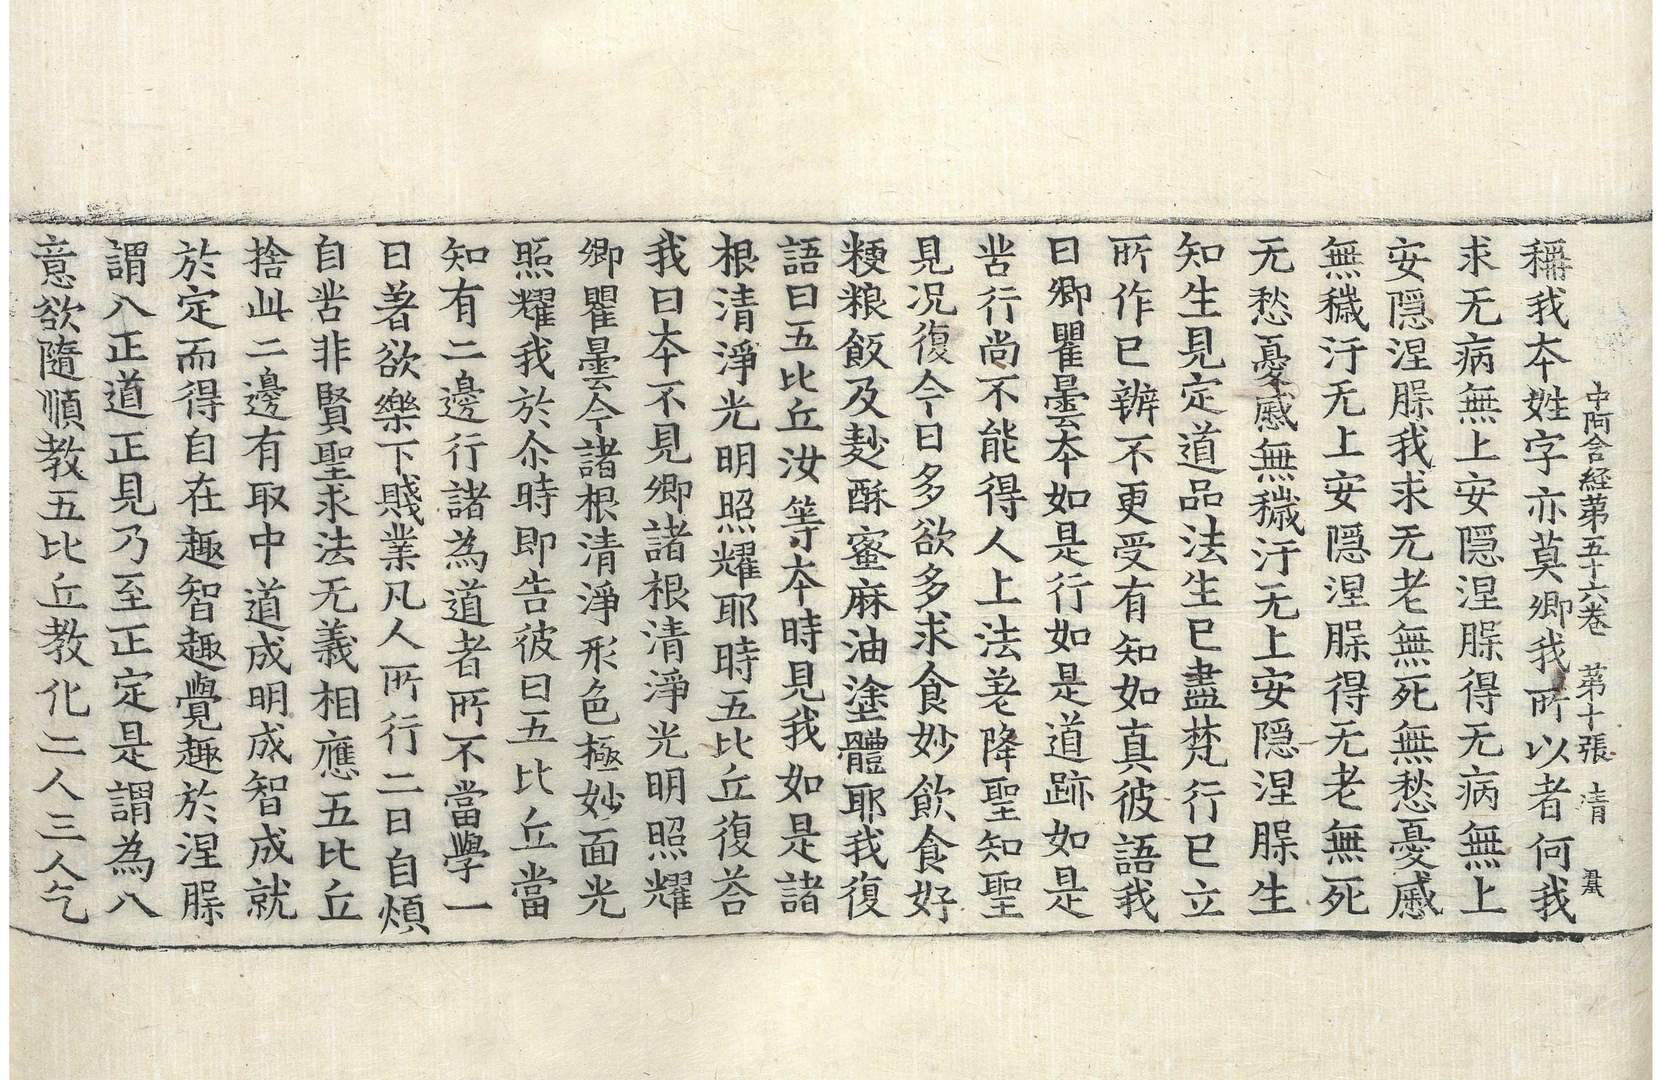 中阿含経苐五十六卷　苐十張　清
稱我夲姓字亦莫卿我所以者何我
求无病無上安隠涅槃得无病無上
安隠涅槃我求无老無死無愁憂慼
無穢汙无上安隠涅槃得无老無死
无愁憂慼無穢汙无上安隠涅槃生
知生見定道品法生已盡梵行已立
所作已辨不更受有知如真彼語我
曰卿瞿曇夲如是行如是道跡如是
苦行尚不能得人上法差降聖知聖
見况復今日多欲多求食妙飲食好
粳粮飯及麨酥蜜麻油塗體耶我復
語曰五比丘汝等夲時見我如是諸
根清淨光明照耀耶時五比丘復荅
我曰夲不見卿諸根清淨光明照耀
卿瞿曇今諸根清淨形色極妙面光
照耀我於尒時即告彼曰五比丘當
知有二邊行諸為道者所不當學一
曰著欲樂下賤業凡人所行二曰自煩
自苦非賢聖求法无義相應五比丘
捨此二邊有取中道成明成智成就
於定而得自在趣智趣覺趣於涅槃
謂八正道正見乃至正定是謂為八
意欲隨順教五比丘教化二人三人乞